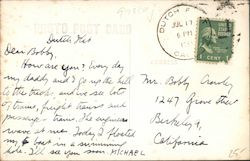 PHOTO POST CARD
Dutch Flat
Dear Bobby
How are you? Every day
my daddy and I go up the hill
to the track, and we see lots
of trains, freight trains and
passenger trains. The engineers
wave at me. Today I floated
my boat in a swimming
hole. I'll see you soon. MICHAEL
DUTCH F
JUL 17
6 PM
CAL
1 CENT
Mr. Bobby Crowley
1247 Grove Street
Berkeley,
California